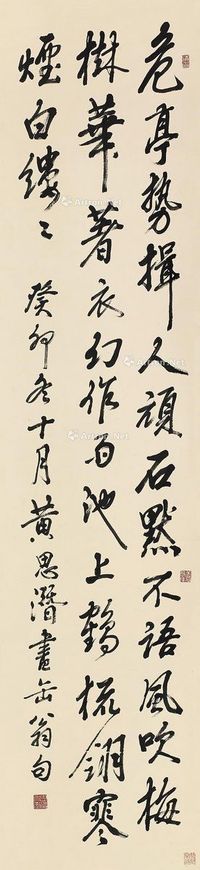 危亭勢揖人頑石默不語風吹梅
樹華著衣幻作雨池上鶴梳翎寒
煙白縷々 癸卯冬十月黃思潛畫缶翁句